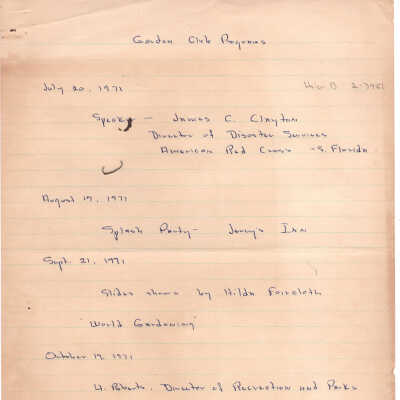 Garden Club Programs
July 20, 1971
Speaker - James C. Clayton
Director of Disaster Services
American Red Cross - S. Florida
August 17, 1971
Splash Party - Jerry's Inn
Sept. 21, 1971
Slides shown by Hilda Faircloth
"World Gardening"
October 19, 1971
H. Roberts, Director of Recreation and Parks